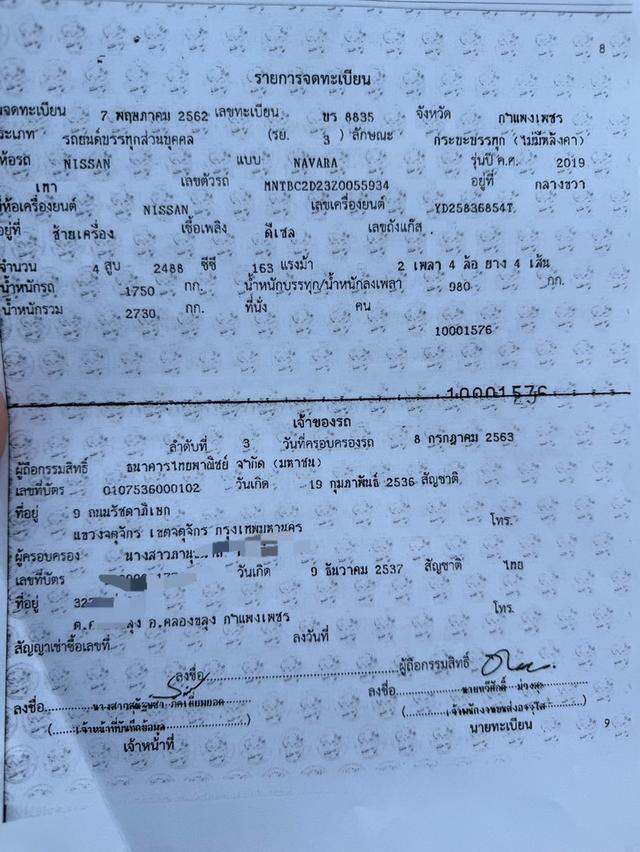 8
รายการจดทะเบียน
จดทะเบียน 7 พฤษภาคม 2562 เลขทะเบียน ขร 8835 จังหวัด กำแพงเพชร
ประเภท รถยนต์บรรทุกส่วนบุคคล (รย. 3 ) ลักษณะ กระบะบรรทุก (ไม่มีหลังคา)
ห้อรถ NISSAN แบบ NAVARA รุ่นปี ค.ศ. 2019
เทา เลขตัวรถ MNTBC2D23Z0055934 อยู่ที่ กลางขวา
ห้อเครื่องยนต์ NISSAN เลขเครื่องยนต์ YD25836854T
อยู่ที่ ซ้ายเครื่อง เชื้อเพลิง ดีเซล เลขถังแก๊ส
จำนวน 4 สูบ 2488 ซีซี 163 แรงม้า 2 เพลา 4 ล้อ ยาง 4 เส้น
น้ำหนักรถ 1750 กก. น้ำหนักบรรทุก/น้ำหนักลงเพลา 980 กก.
น้ำหนักรวม 2730 กก. ที่นั่ง คน
10001576
10001576
เจ้าของรถ
ลำดับที่ 3 วันที่ครอบครองรถ 8 กรกฎาคม 2563
ผู้ถือกรรมสิทธิ์ ธนาคารไทยพาณิชย์ จำกัด (มหาชน)
เลขที่บัตร 0107536000102 วันเกิด 19 กุมภาพันธ์ 2536 สัญชาติ
ที่อยู่ 9 ถนนรัชดาภิเษก
แขวงจตุจักร เขตจตุจักร กรุงเทพมหานคร โทร.
ผู้ครอบครอง นางสาวภานุ
เลขที่บัตร วันเกิด 9 ธันวาคม 2537 สัญชาติ ไทย
ที่อยู่ 32 โทร.
ต.ค ลุง อ.คลองขลุง กำแพงเพชร
สัญญาเช่าซื้อเลขที่ ลงวันที่
ลงชื่อ ผู้ถือกรรมสิทธิ์
ลงชื่อ ลงชื่อ
(เจ้าหน้าที่บันทึกข้อมูล) (เจ้าพนักงานขนส่งอาวุโส)
เจ้าหน้าที่ นายทะเบียน 9